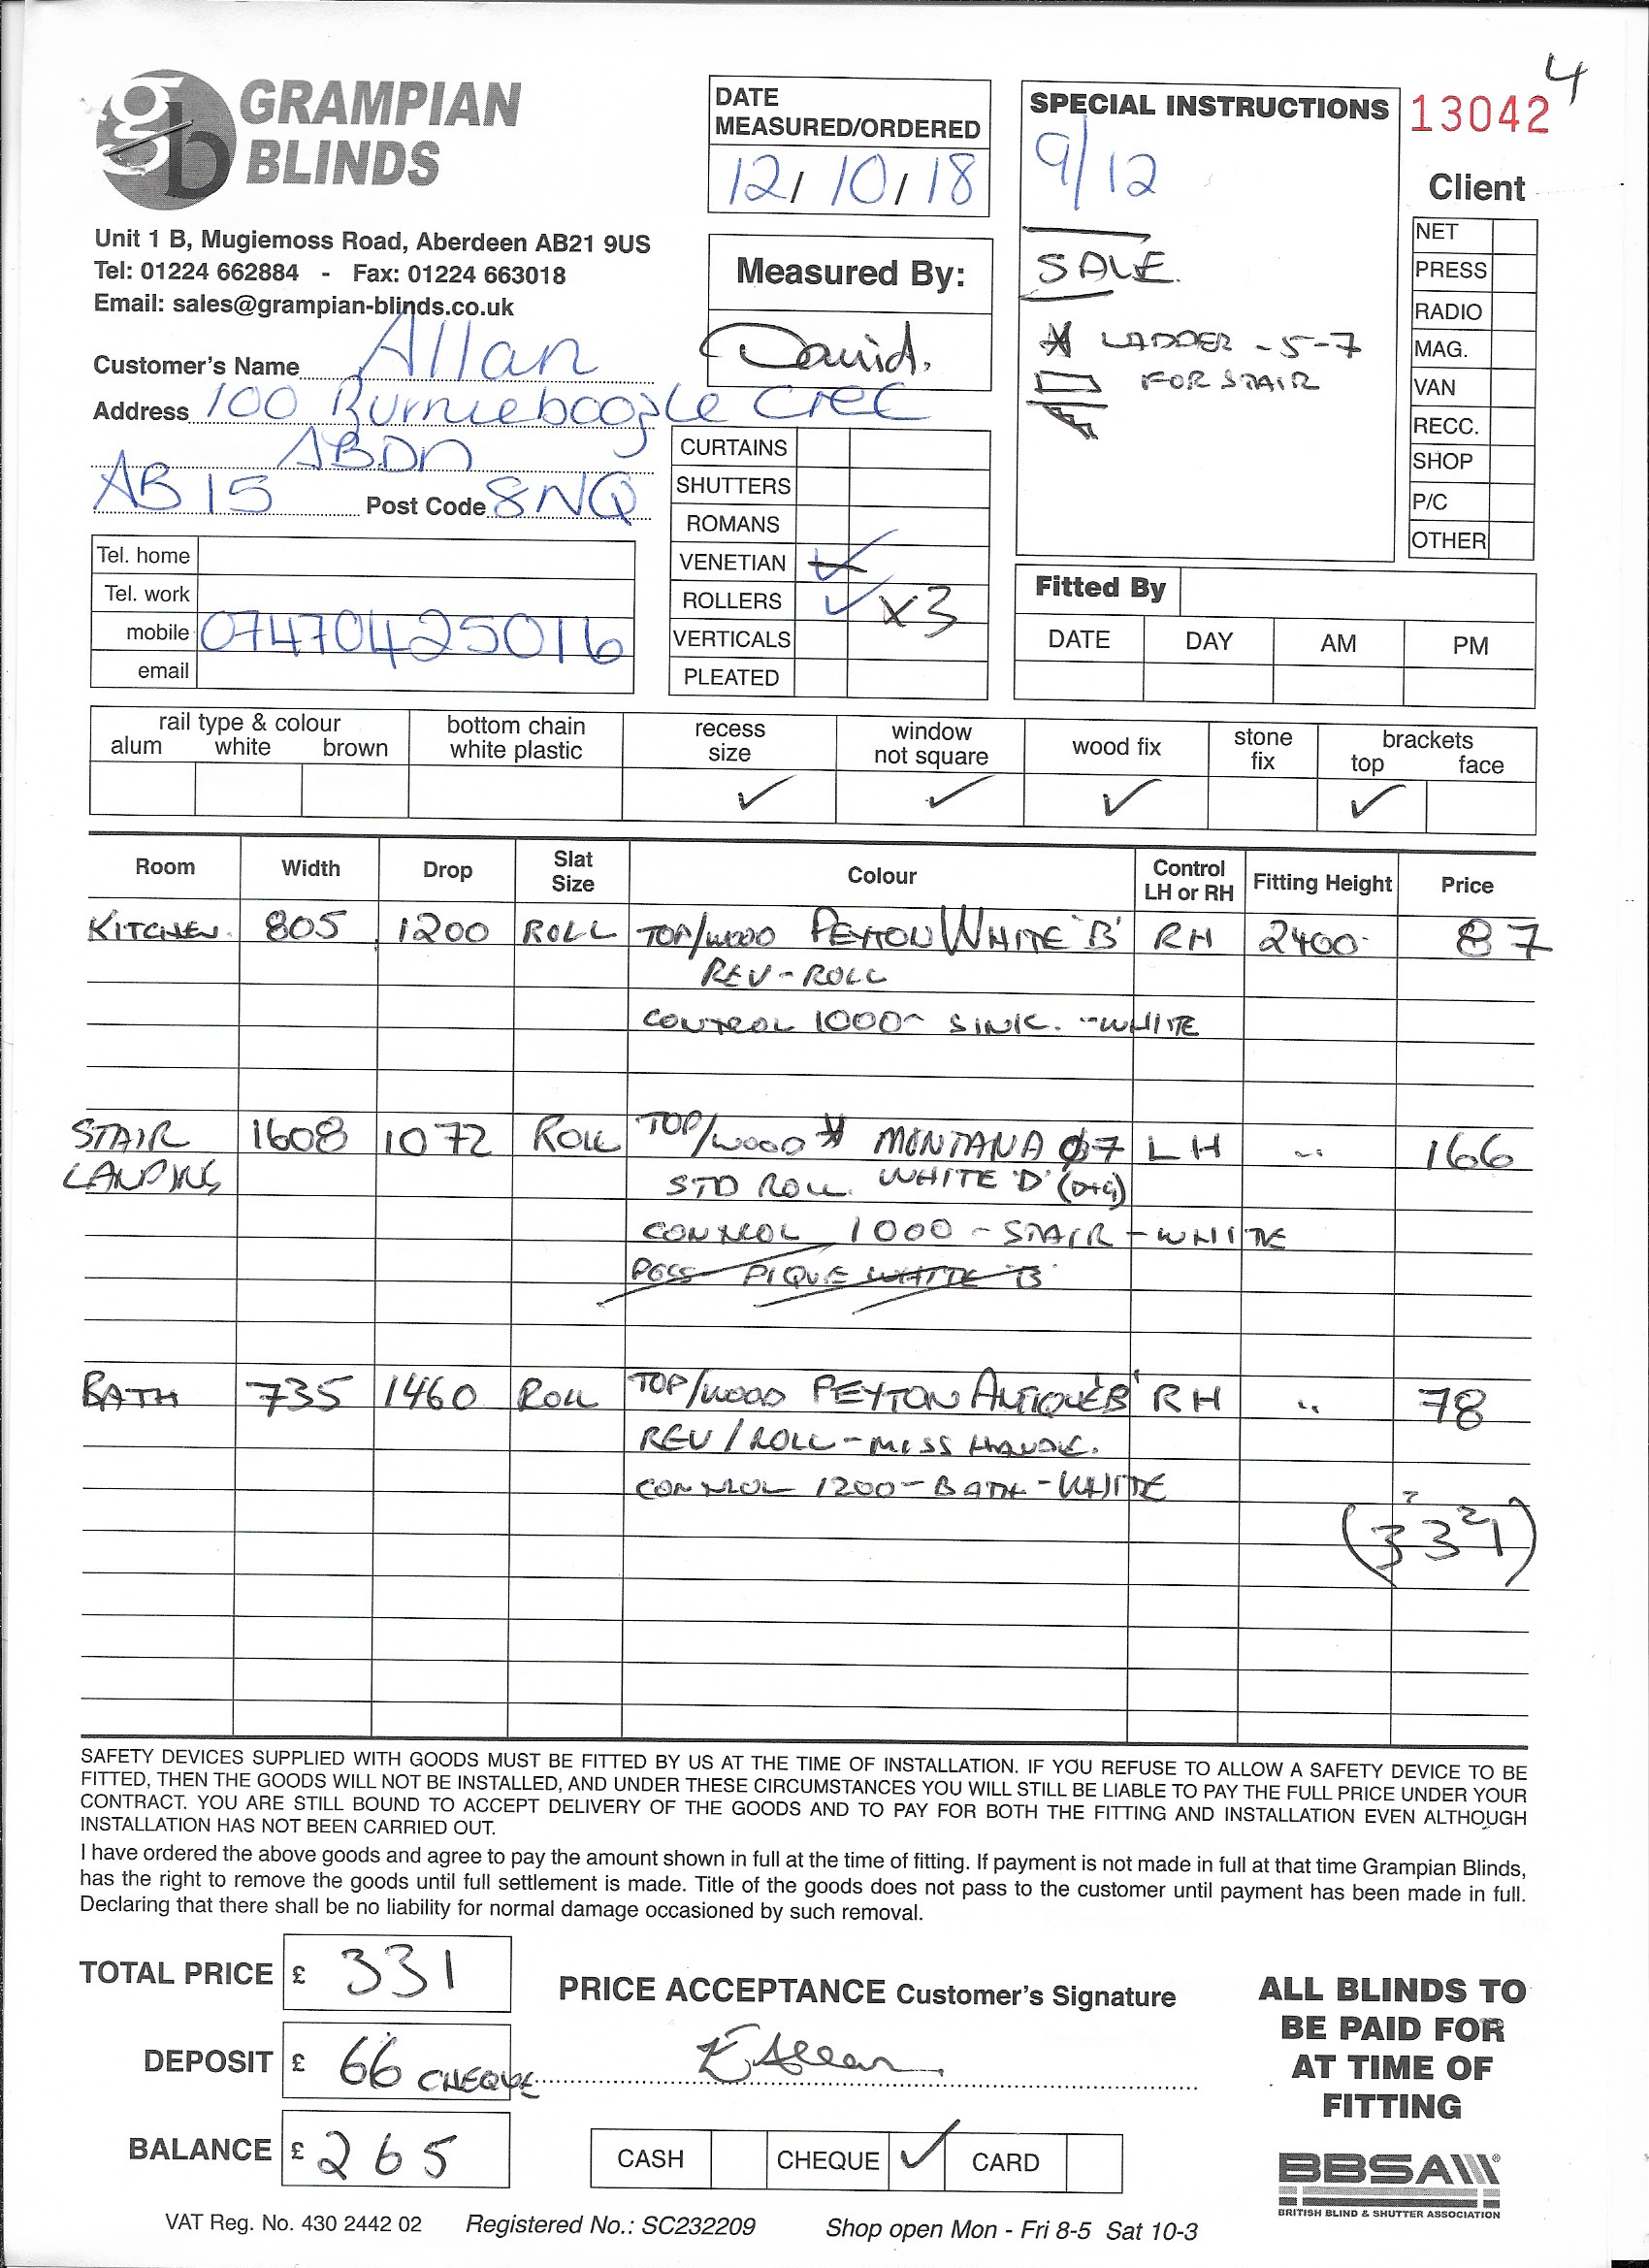 4
GRAMPIAN
BLINDS
Unit 1 B, Mugiemoss Road, Aberdeen AB21 9US
Tel: 01224 662884 - Fax: 01224 663018
Email: sales@grampian-blinds.co.uk
DATE
MEASURED/ORDERED
12/10/18
Measured By:
David.
SPECIAL INSTRUCTIONS
9/12
SALE.
* LADDER - 5-7
FOR STAIR
13042
Client
NET
PRESS
RADIO
MAG.
VAN
RECC.
SHOP
P/C
OTHER
Customer's Name Allan
Address 100 Burnieboozle Crec
ABDN
AB15 Post Code 8NQ
Tel. home
Tel. work
mobile 07470425016
email
CURTAINS
SHUTTERS
ROMANS
VENETIAN ✓
ROLLERS ✓ x3
VERTICALS
PLEATED
Fitted By
DATE DAY AM PM
rail type & colour
alum white brown
bottom chain
white plastic
recess
size
✓
window
not square
✓
wood fix
✓
stone
fix
brackets
top face
✓
Room Width Drop Slat Size Colour Control LH or RH Fitting Height Price
KITCHEN 805 1200 ROLL TOP/WOOD PEYTON WHITE 'B' RH 2400 87
REV-ROLL
CONTROL 1000 - SINK. - WHITE
STAIR LANDING 1608 1072 ROLL TOP/WOOD * MONTANA 07 LH " 166
STD ROLL. WHITE 'D' (D+G)
CONTROL 1000 - STAIR - WHITE
POSS PIQUE WHITE 'B'
BATH 735 1460 ROLL TOP/WOOD PEYTON ANTIQUE 'B' RH " 78
REV/ROLL - MISS HANDLE.
CONTROL 1200 - BATH - WHITE
(331)
SAFETY DEVICES SUPPLIED WITH GOODS MUST BE FITTED BY US AT THE TIME OF INSTALLATION. IF YOU REFUSE TO ALLOW A SAFETY DEVICE TO BE
FITTED, THEN THE GOODS WILL NOT BE INSTALLED, AND UNDER THESE CIRCUMSTANCES YOU WILL STILL BE LIABLE TO PAY THE FULL PRICE UNDER YOUR
CONTRACT. YOU ARE STILL BOUND TO ACCEPT DELIVERY OF THE GOODS AND TO PAY FOR BOTH THE FITTING AND INSTALLATION EVEN ALTHOUGH
INSTALLATION HAS NOT BEEN CARRIED OUT.
I have ordered the above goods and agree to pay the amount shown in full at the time of fitting. If payment is not made in full at that time Grampian Blinds,
has the right to remove the goods until full settlement is made. Title of the goods does not pass to the customer until payment has been made in full.
Declaring that there shall be no liability for normal damage occasioned by such removal.
TOTAL PRICE £ 331
DEPOSIT £ 66 CHEQUE
BALANCE £ 265
PRICE ACCEPTANCE Customer's Signature
E Allan
CASH CHEQUE ✓ CARD
ALL BLINDS TO
BE PAID FOR
AT TIME OF
FITTING
BBSA
BRITISH BLIND & SHUTTER ASSOCIATION
VAT Reg. No. 430 2442 02 Registered No.: SC232209 Shop open Mon - Fri 8-5 Sat 10-3